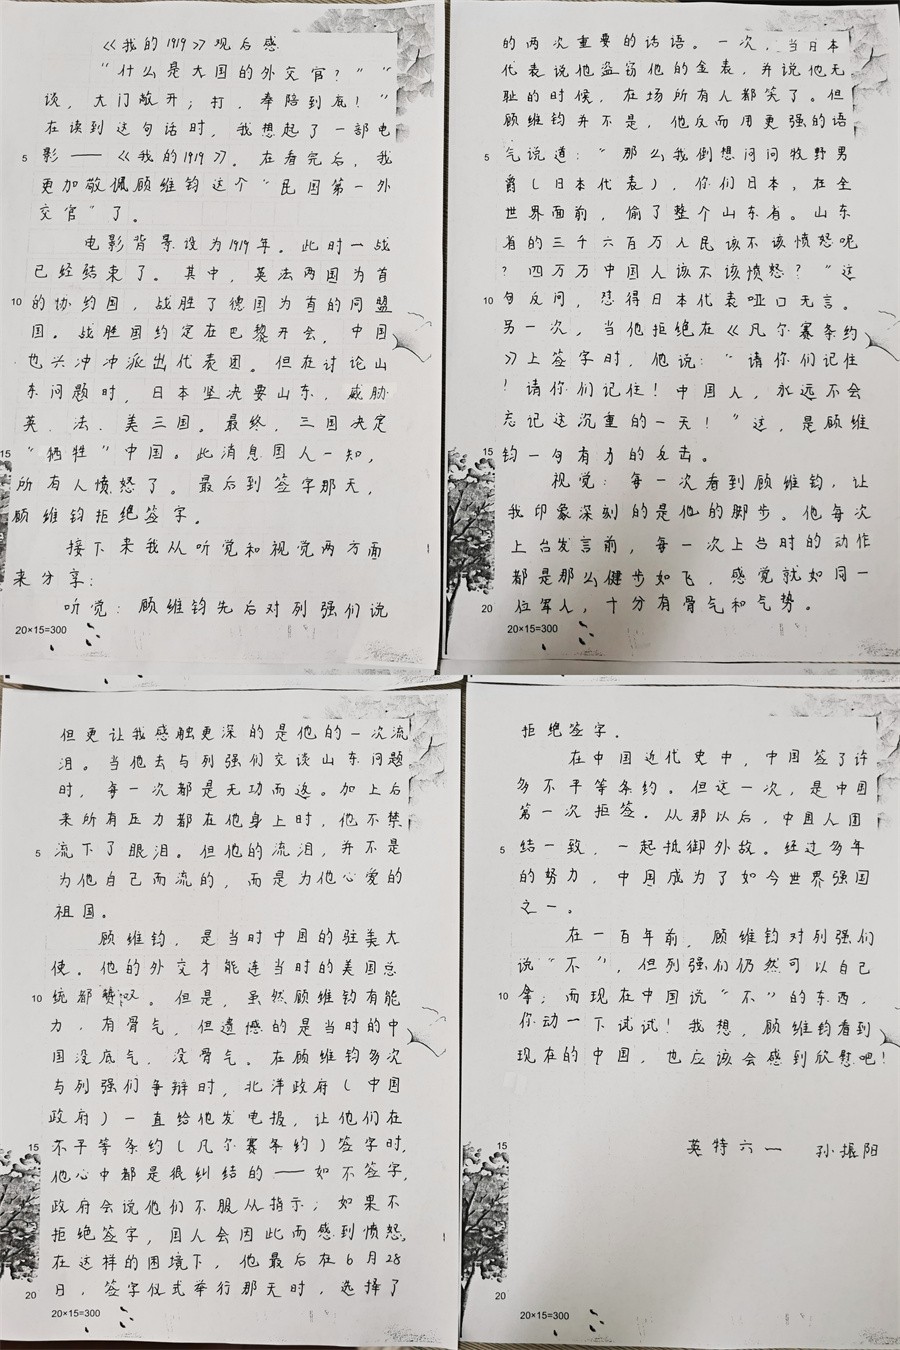 《我的1919》观后感
“什么是大国的外交官?”“
谈,大门敞开;打,奉陪到底!”
在读到这句话时,我想起了一部电
5 影——《我的1919》。在看完后,我
更加敬佩顾维钧这个“民国第一外
交官”了。
电影背景设为1919年。此时一战
已经结束了。其中,英法两国为首
10 的协约国,战胜了德国为首的同盟
国。战胜国约定在巴黎开会,中国
也兴冲冲派出代表团。但在讨论山
东问题时,日本坚决要山东,威胁
英、法、美三国。最终,三国决定
15 “牺牲”中国。此消息国人一知,
所有人愤怒了。最后到签字那天,
顾维钧拒绝签字。
接下来我从听觉和视觉两方面
来分享:
听觉:顾维钧先后对列强们说
20×15=300
的两次重要的话语。一次,当日本
代表说他盗窃他的金表,并说他无
耻的时候,在场所有人都笑了。但
顾维钧并不是,他反而用更强的语
5 气说道:“那么我倒想问问牧野男
爵(日本代表),你们日本,在全
世界面前,偷了整个山东省。山东
省的三千六百万人民该不该愤怒呢
?四万万中国人该不该愤怒?”这
10 句反问,怼得日本代表哑口无言。
另一次,当他拒绝在《凡尔赛条约
》上签字时,他说:“请你们记住
!请你们记住!中国人,永远不会
忘记这沉重的一天!”这,是顾维
15 钧一句有力的反击。
视觉:每一次看到顾维钧,让
我印象深刻的是他的脚步。他每次
上台发言前,每一次上台时的动作
都是那么健步如飞,感觉就如同一
20 位军人,十分有骨气和气势。
20×15=300
但更让我感触更深的是他的一次流
泪。当他去与列强们交谈山东问题
时,每一次都是无功而返。加上后
来所有压力都在他身上时,他不禁
5 流下了眼泪。但他的流泪,并不是
为他自己而流的,而是为他心爱的
祖国。
顾维钧,是当时中国的驻美大
使。他的外交才能连当时的美国总
10 统都赞叹。但是,虽然顾维钧有能
力,有骨气,但遗憾的是当时的中
国没底气,没骨气。在顾维钧多次
与列强们争辩时,北洋政府(中国
政府)一直给他发电报,让他们在
15 不平等条约(凡尔赛条约)签字时,
他心中都是很纠结的——如不签字,
政府会说他们不服从指示;如果不
拒绝签字,国人会因此而感到愤怒,
在这样的困境下,他最后在6月28
20 日,签字仪式举行那天时,选择了
20×15=300
拒绝签字。
在中国近代史中,中国签了许
多不平等条约。但这一次,是中国
第一次拒签。从那以后,中国人团
5 结一致,一起抵御外敌。经过多年
的努力,中国成为了如今世界强国
之一。
在一百年前,顾维钧对列强们
说“不”,但列强们仍然可以自己
10 拿;而现在中国说“不”的东西,
你动一下试试!我想,顾维钧看到
现在的中国,也应该会感到欣慰吧!
15
英特六一 孙振阳
20
20×15=300